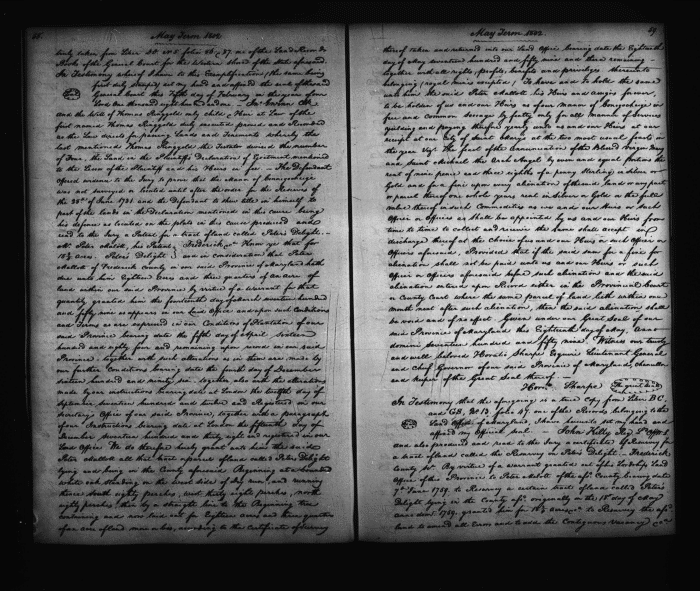 May Term 1802
truly taken from Liber folio 86, 87. one of the Land Records
Books of the General Court for the Western Shore of the State aforesaid.
In Testimony whereof I have to the Exemplification, the same being
first duly hereunto set my hand and affixed the seal of the said
General Court this Fifth day of February in the year of our
Lord one thousand eight hundred and
and the Will of Thomas Ringgold only child & Heir at Law of the
first named Thomas Ringgold duly executed proved and Recorded
as the Law directs for passing Lands and Tenements whereby the
last mentioned Thomas Ringgold the Testator devised the
of Fran. the Land in the Plaintiff's Declaration of Ejectment mentioned
to the Lessor of the Plaintiff and his Heirs in fee - The Defendant
offered evidence to the Jury to prove that the Manor of
was not surveyed or located until after the order for the Reserves of
the 28th of June 1731 and the Defendant to shew title in himself to
part of the lands in the Declaration mentioned in this cause being
his defence as located on the plots in this cause produced and
read to the Jury a Patent for a tract of land called Peter's Delight -
Peter Malott, his Patent Frederick &c Know ye that for
18¾ acres Peter's Delight and in consideration that Peter
Malott of Frederick County in our said Province of Maryland hath
due unto him Eighteen acres and three quarters of an acre of
land within our said Province by virtue of a Warrant for that
quantity granted him the fourteenth day of March seventeen hundred
and fifty nine as appears in our Land Office and upon such Conditions
and Terms as are expressed in our Conditions of Plantation of our
said Province bearing date the fifth day of April sixteen
hundred and eighty four and remaining upon record in our said
Province together with such alterations as in them are made by
our further Conditions bearing date the fourth day of December
sixteen hundred and ninety six together also with the alterations
made by our instructions bearing date at London the twelfth day of
September seventeen hundred and twelve and Registered in our
Secretary's Office of our said Province, together with a paragraph
of our Instructions bearing date at London the fifteenth day of
December seventeen hundred and thirty eight and registered in our
Land Office We do therefore hereby grant unto him the said
Peter Malott all that tract or parcel of land called Peter's Delight
lying and being in the County aforesaid Beginning at a bounded
white oak standing on the west side of dry run, and running
thence South eighty perches, west thirty eight perches, north
eighty perches, then by a straight line to the Beginning tree
containing and now laid out for Eighteen acres and three quarters
of an acre of land more or less, according to the Certificate of Survey
May Term 1802.
59
thereof taken and returned into our Land Office bearing date the Eighteenth
day of May seventeen hundred and fifty nine and there remaining -
together with all rights, profits, benefits and privileges thereunto
belonging (royal mines excepted) To have and to hold the same
unto him the said Peter Malott his Heirs and assigns forever,
to be holden of us and our Heirs as of our manor of Conegocheige in
free and common Soccage by fealty only for all manner of Services
yielding and paying therefore yearly unto us and our Heirs at our
receipt at our City of Saint Mary's at the two most usual feasts in
the year Viz. The feast of the Annunciation of the Blessed Virgin Mary
and Saint Michael the Arch Angel by even and equal portions the
rent of nine pence and three eighths of a penny Sterling in silver or
Gold and for a fine upon every alienation of the said land or any part
or parcel thereof one whole years rent in silver or Gold or the full
value thereof in such Commodities as we and our Heirs or such
Officer or Officers as shall be appointed by us and our Heirs from
time to time to collect and receive the same shall accept in
discharge thereof at the Choice of us and our Heirs or such Officer or
Officers aforesaid. Provided that if the said sum for a fine for
alienation shall not be paid unto us and our Heirs or such
Officer or Officers aforesaid before such alienation and the said
alienation entered upon Record either in the Provincial Court
or County Court where the same parcel of land lieth within one
month next after such alienation, then the said alienation shall
be void and of no effect Given under our Great Seal of our
said Province of Maryland this Eighteenth day of May. Anno
domini Seventeen hundred and fifty nine. Witness our trusty
and well beloved Horatio Sharpe Esquire Lieutenant General
and Chief Governor of our said Province of Maryland, Chancellor
and Keeper of the Great Seal thereof
Horo. Sharpe The great seal
In Testimony that the aforegoing is a true Copy from Liber B.C.
and G.S. No. 13. folio 47 one of the Records belonging to the
Land Office of Maryland, I have hereunto set my hand and
affixed my Official Seal. John Kilty Reg. Ld. Office
and also produced and read to the Jury a certificate of Resurvey for
a tract of land called the Resurvey on Peter's Delight - Frederick
County Sc. By virtue of a warrant granted out of his Lordship's Land
Office of this Province to Peter Malott of the afd. County bearing date
7th June 1759. to Resurvey a certain tract of land called Peter's
Delight lying in the County afd. originally on the 18th day of May
anno dom. 1759. granted him for 18¾ acres &c to Resurvey the afd.
land to amend all Errors and to add the Contiguous Vacancy &c